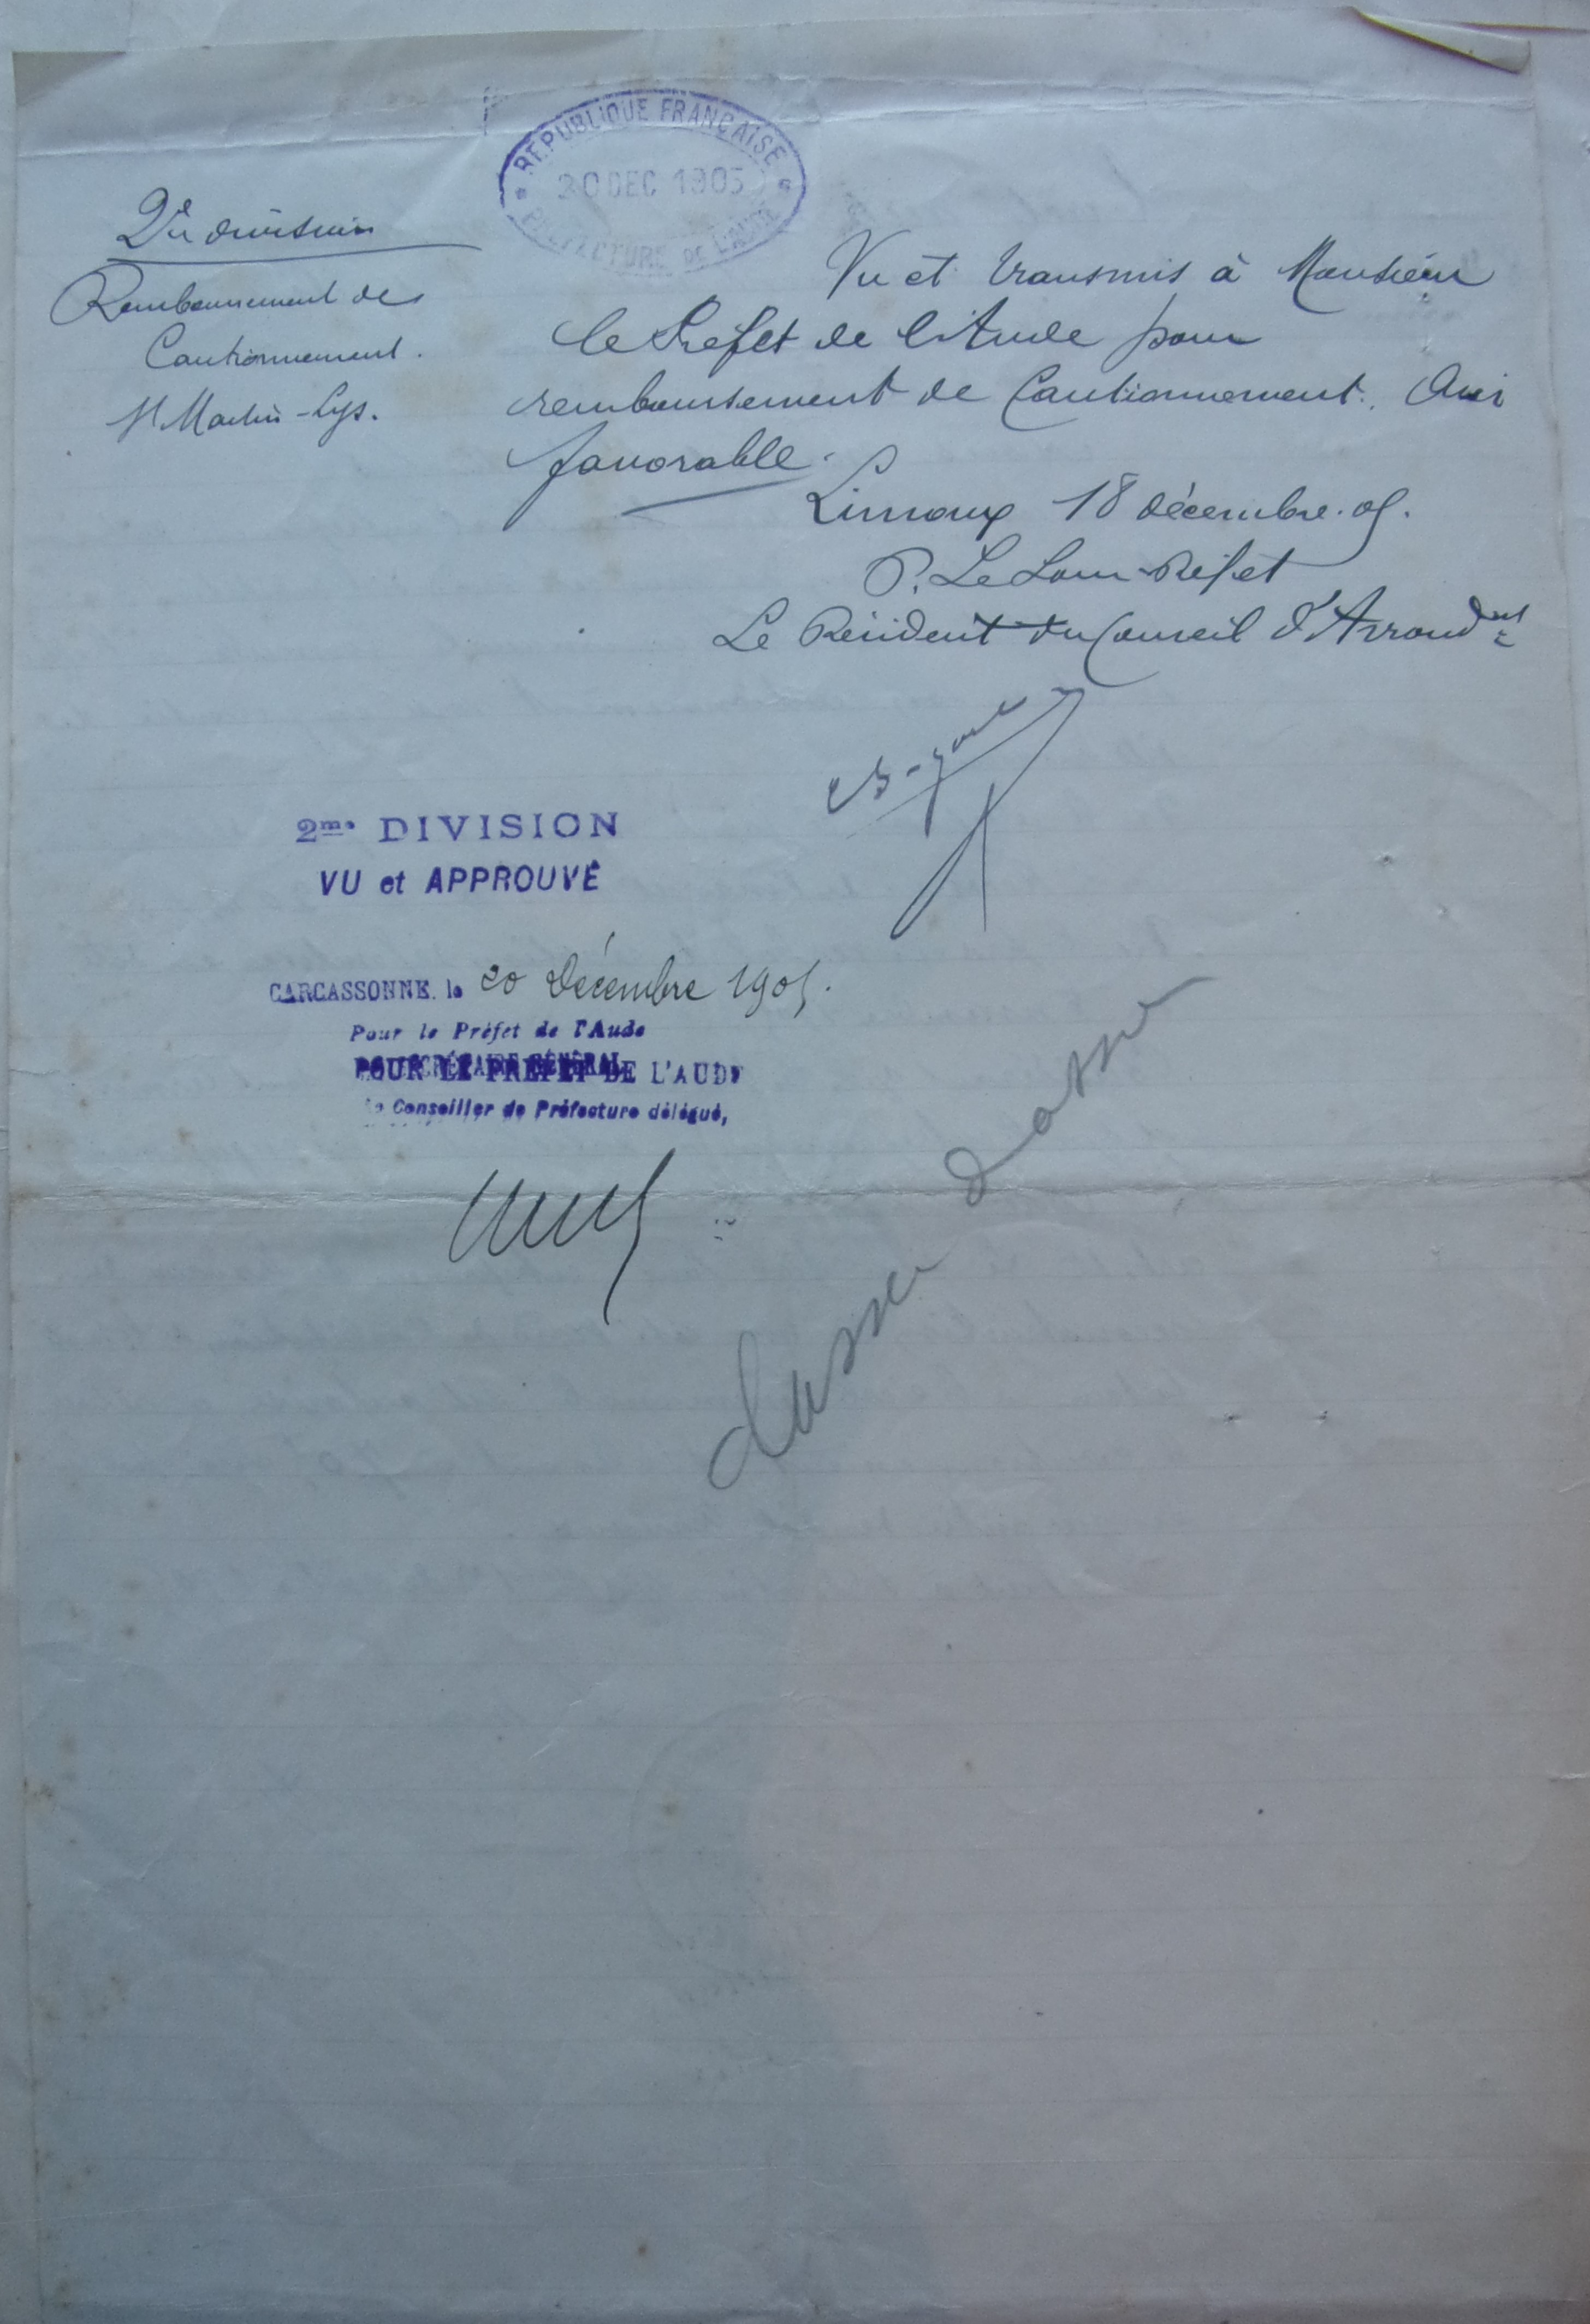 RÉPUBLIQUE FRANÇAISE
20 DEC 1905
PRÉFECTURE DE L'AUDE
2e division
Remboursement de
Cautionnement.
St Martin-Lys.
Vu et transmis à Monsieur
le Préfet de l'Aude pour
remboursement de Cautionnement. Avis
favorable.
Limoux 18 décembre 05.
P. Le Sous-Préfet
Le Président du Conseil d'Arrondnt
2me DIVISION
VU et APPROUVÉ
CARCASSONNE, le 20 Décembre 1905.
Pour le Préfet de l'Aude
LE SECRÉTAIRE GÉNÉRAL
POUR LE PREFET DE L'AUDE
le Conseiller de Préfecture délégué,